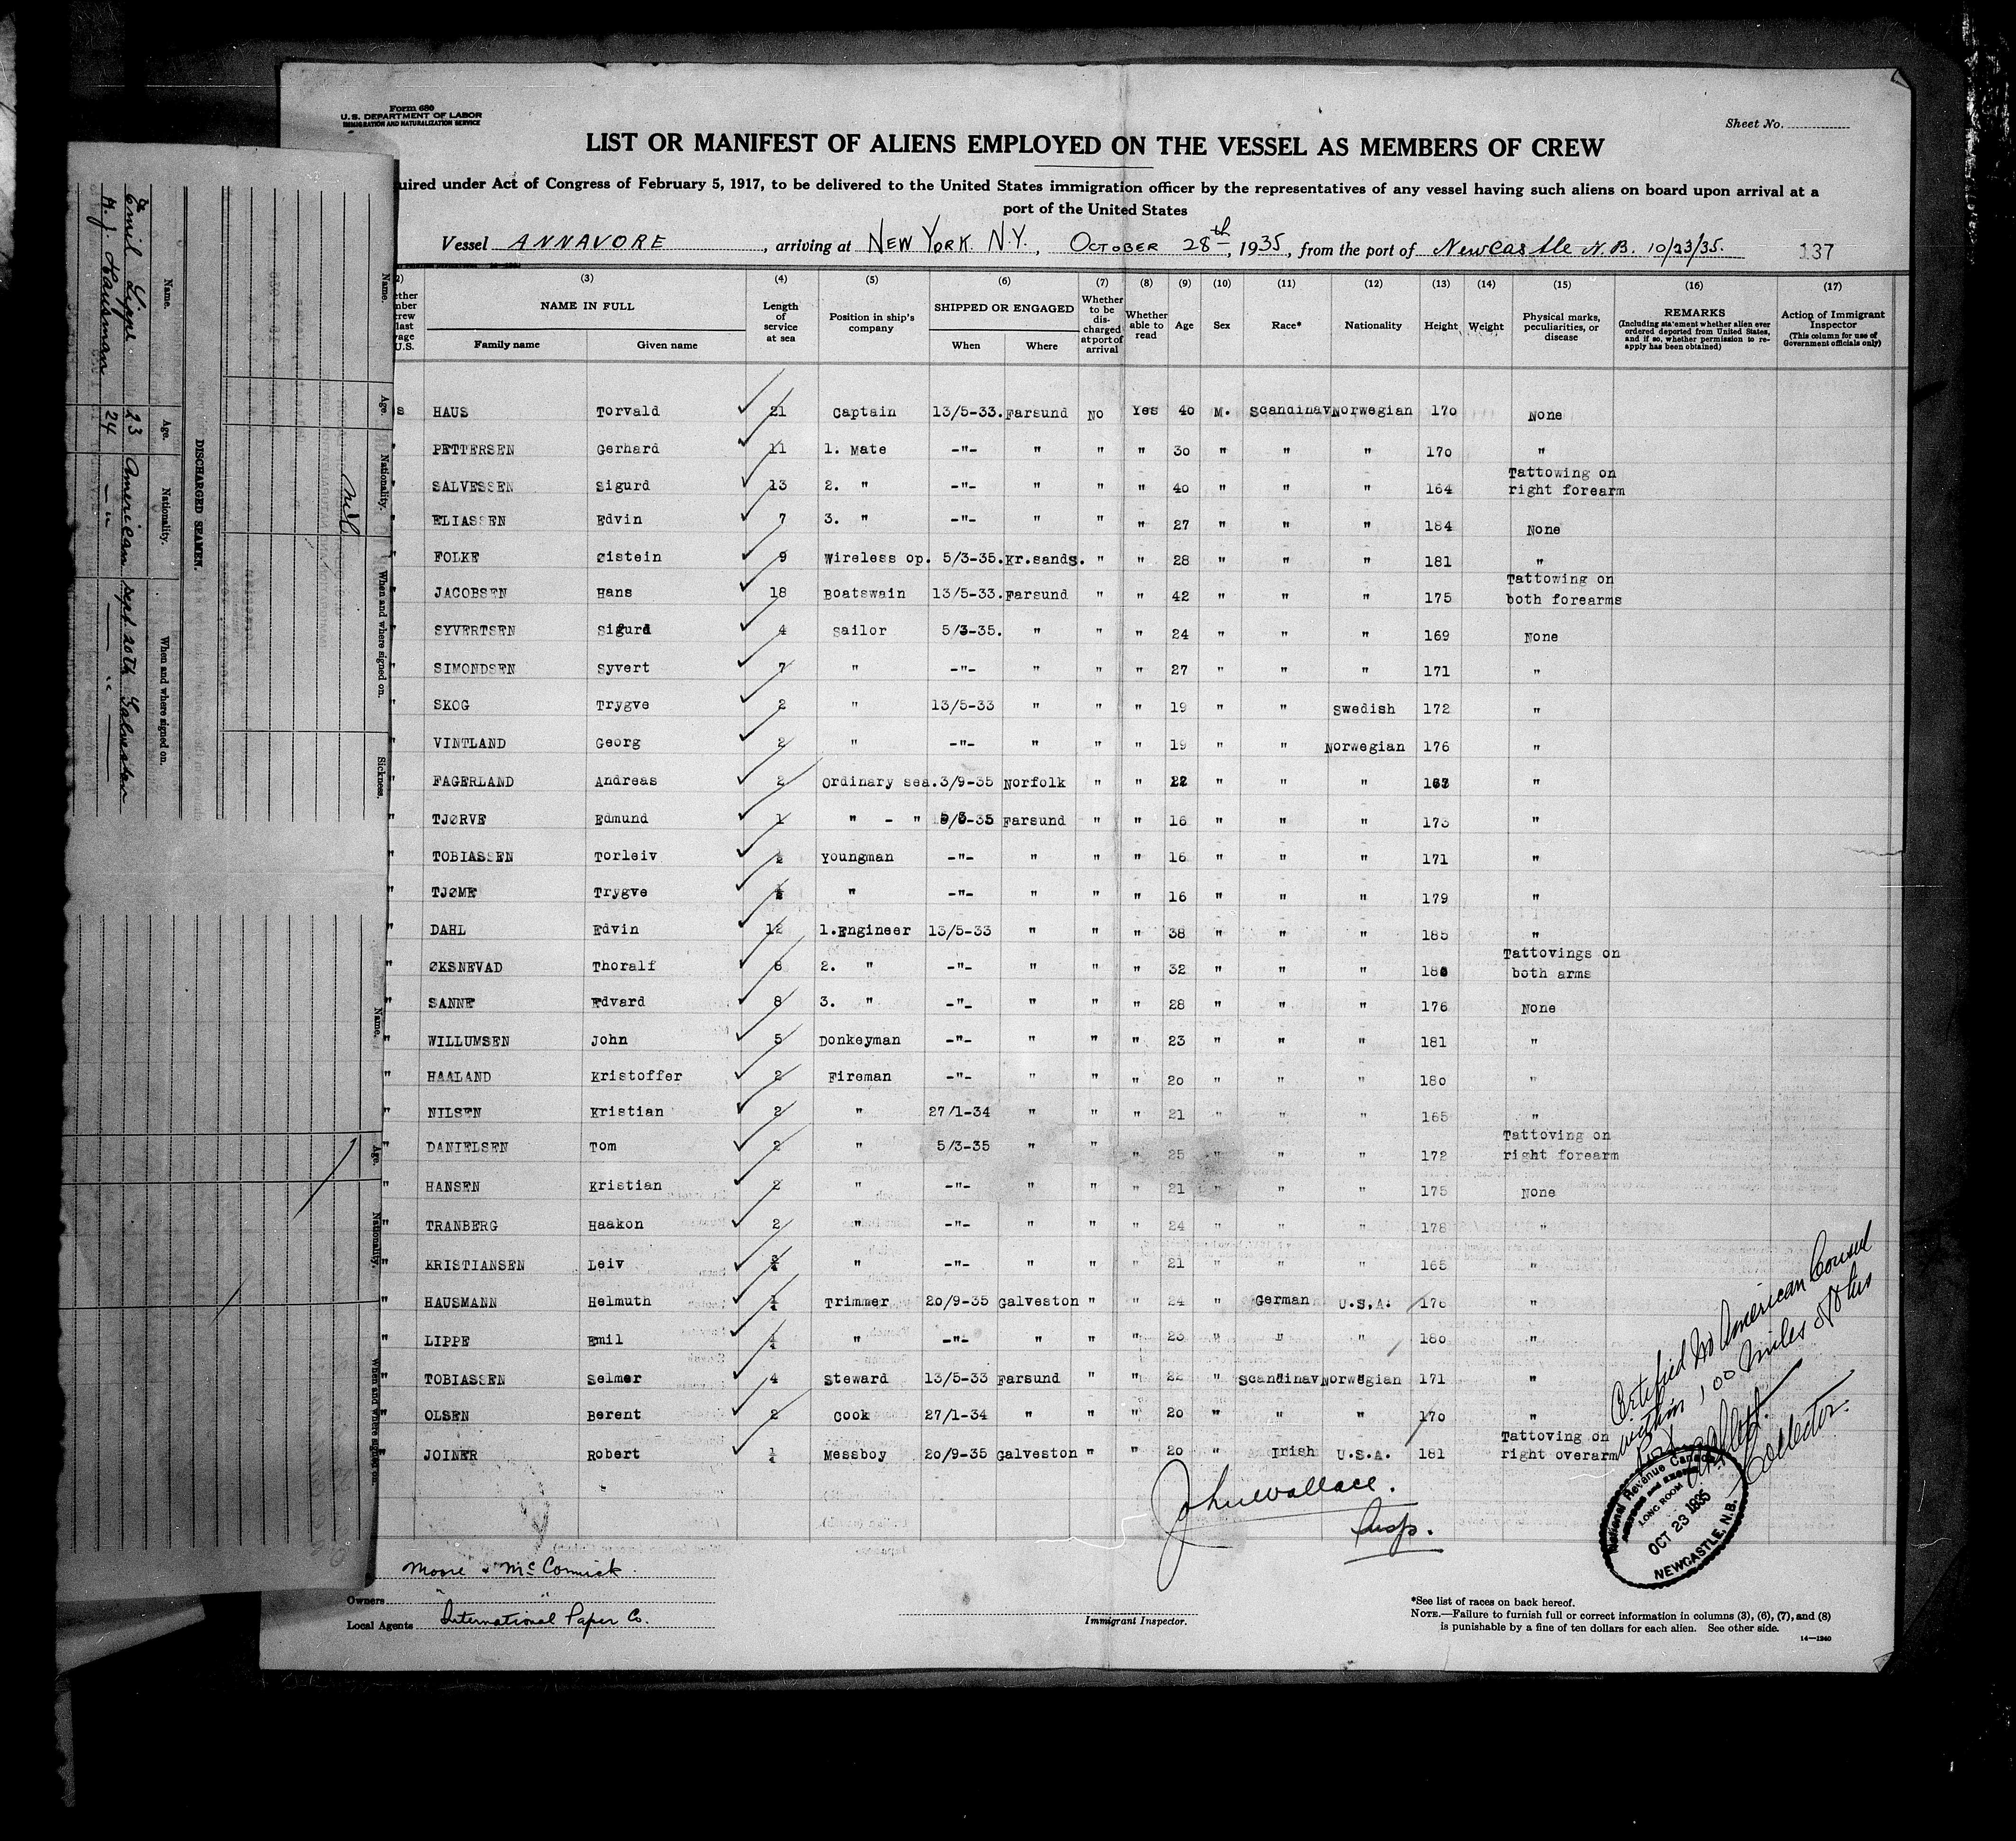 Form 680
U. S. DEPARTMENT OF LABOR
IMMIGRATION AND NATURALIZATION SERVICE
Sheet No.
LIST OR MANIFEST OF ALIENS EMPLOYED ON THE VESSEL AS MEMBERS OF CREW
uired under Act of Congress of February 5, 1917, to be delivered to the United States immigration officer by the representatives of any vessel having such aliens on board upon arrival at a
port of the United States
Vessel ANNAVORE, arriving at NEW YORK N.Y., OCTOBER 28th, 1935, from the port of Newcastle N.B. 10/23/35. 137
(3) (4) (5) (6) (7) (8) (9) (10) (11) (12) (13) (14) (15) (16) (17)
NAME IN FULL
Family name Given name
Length of service at sea
Position in ship's company
SHIPPED OR ENGAGED
When Where
Whether to be discharged at port of arrival
Whether able to read
Age Sex Race* Nationality Height Weight
Physical marks, peculiarities, or disease
REMARKS
(Including statement whether alien ever ordered deported from United States, and if so, whether permission to reapply has been obtained)
Action of Immigrant Inspector
(This column for use of Government officials only)
HAUS Torvald 21 Captain 13/5-33. Farsund No Yes 40 M. Scandinav Norwegian 170 None
" PETTERSEN Gerhard 11 1. Mate -"- " " " 30 " " " 170 "
" SALVESSEN Sigurd 13 2. " -"- " " " 40 " " " 164 Tattowing on right forearm
" ELIASSEN Edvin 7 3. " -"- " " " 27 " " " 184 None
" FOLKE Øistein 9 Wireless op. 5/3-35. Kr.sands. " " 28 " " " 181 "
" JACOBSEN Hans 18 Boatswain 13/5-33. Farsund " " 42 " " " 175 Tattowing on both forearms
" SYVERTSEN Sigurd 4 Sailor 5/3-35. " " " 24 " " " 169 None
" SIMONDSEN Syvert 7 " -"- " " " 27 " " " 171 "
" SKOG Trygve 2 " 13/5-33 " " " 19 " " Swedish 172 "
" VINTLAND Georg 2 " -"- " " " 19 " " Norwegian 176 "
" FAGERLAND Andreas 2 Ordinary sea. 3/9-35 Norfolk " " 22 " " " "
" TJØRVE Edmund 1 " - " 5/3-35 Farsund " " 16 " " " 173 "
" TOBIASSEN Torleiv ½ Youngman -"- " " " 16 " " " 171 "
" TJØME Trygve " -"- " " " 16 " " " 179 "
" DAHL Edvin 12 1. Engineer 13/5-33 " " " 38 " " " 185 "
" ØKSNEVAD Thoralf 8 2. " -"- " " " 32 " " " Tattovings on both arms
" SANNE Edvard 8 3. " -"- " " " 28 " " " 176 None
" WILLUMSEN John 5 Donkeyman -"- " " " 23 " " " 181 "
" HAALAND Kristoffer 2 Fireman -"- " " " 20 " " " 180 "
" NILSEN Kristian 2 " 27/1-34 " " " 21 " " " 165 "
" DANIELSEN Tom 2 " 5/3-35 " " " 25 " " " 172 Tattoving on right forearm
" HANSEN Kristian 2 " -"- " " " 21 " " " 175 None
" TRANBERG Haakon 2 " -"- " " " 24 " " " 178 "
" KRISTIANSEN Leiv ¾ " -"- " " " 21 " " " 165 "
" HAUSMANN Helmuth ¼ Trimmer 20/9-35 Galveston " " 24 " German U.S.A. 176 "
" LIPPE Emil ¼ " -"- " " " 23 " " " 180 "
" TOBIASSEN Selmer 4 Steward 13/5-33 Farsund " " 22 " Scandinav Norwegian 171 "
" OLSEN Berent 2 Cook 27/1-34 " " " 20 " " " 170 "
" JOINER Robert ¼ Messboy 20/9-35 Galveston " " 20 " Irish U.S.A. 181 Tattoving on right overarm
Certified no American Consul
within 100 miles of this
Port
Collector.
National Revenue Canada
LONG ROOM
OCT 23 1935
NEWCASTLE, N.B.
John Wallace.
Insp.
Moore & McCormick.
Owners
Local Agents International Paper Co.
Immigrant Inspector.
*See list of races on back hereof.
NOTE.—Failure to furnish full or correct information in columns (3), (6), (7), and (8)
is punishable by a fine of ten dollars for each alien. See other side.
14—1240
DISCHARGED SEAMEN.
Name. Age. Nationality. When and where signed on.
Emil Lippe 23 American Sept 20th Galveston
H. J. Hausman 24 -"- -"-
Name. Age. Nationality. When and where signed on. Sickness.
nil
Name. Age. Nationality. When and where signed on.